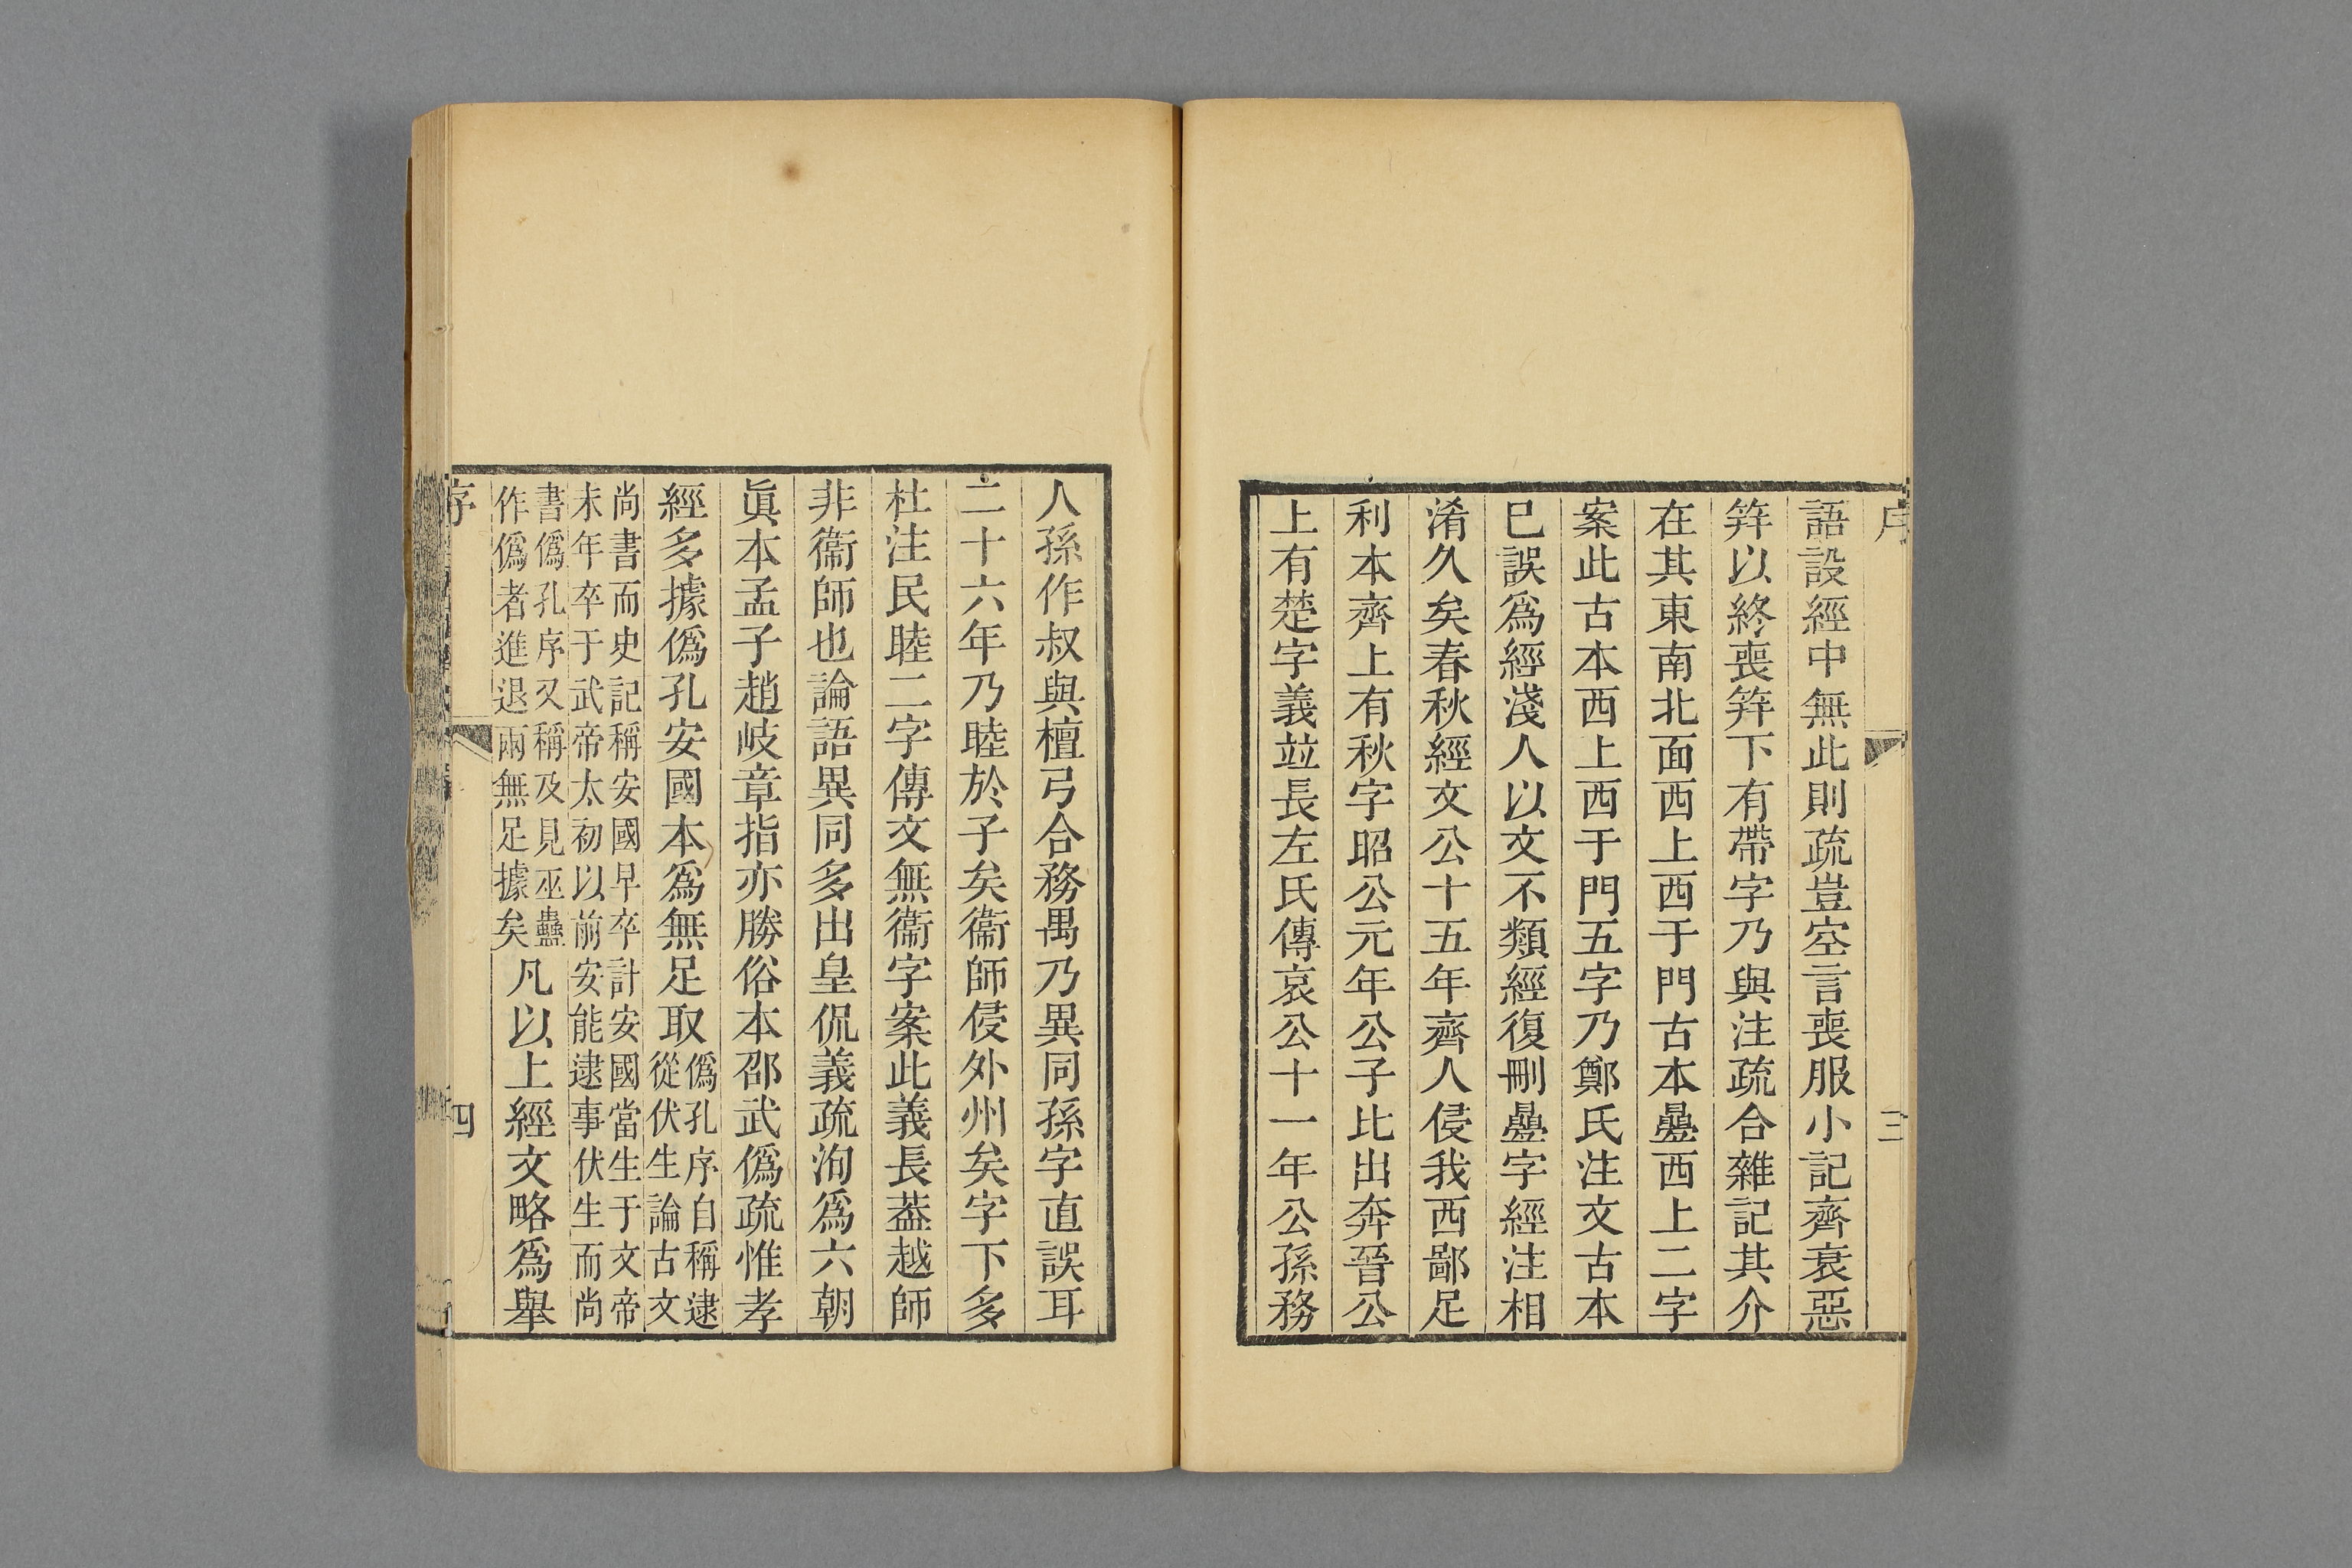 序
三
語設經中無此則疏豈空言喪服小記齊衰惡
笄以終喪笄下有帶字乃與注疏合雜記其介
在其東南北面西上西于門古本疊西上二字
案此古本西上西于門五字乃鄭氏注文古本
已誤爲經淺人以文不類經復刪疊字經注相
淆久矣春秋經文公十五年齊人侵我西鄙足
利本齊上有秋字昭公元年公子比出奔晉公
上有楚字義竝長左氏傳哀公十一年公孫務
人孫作叔與檀弓合務禺乃異同孫字直誤耳
二十六年乃睦於子矣衞師侵外州矣字下多
杜注民睦二字傳文無衞字案此義長葢越師
非衞師也論語異同多出皇侃義疏洵爲六朝
眞本孟子趙岐章指亦勝俗本邵武僞疏惟孝
經多據僞孔安國本爲無足取僞孔序自稱逮
從伏生論古文
尚書而史記稱安國早卒計安國當生于文帝
末年卒于武帝太初以前安能逮事伏生而尚
書僞孔序又稱及見巫蠱
作僞者進退兩無足據矣凡以上經文略爲舉
序
四